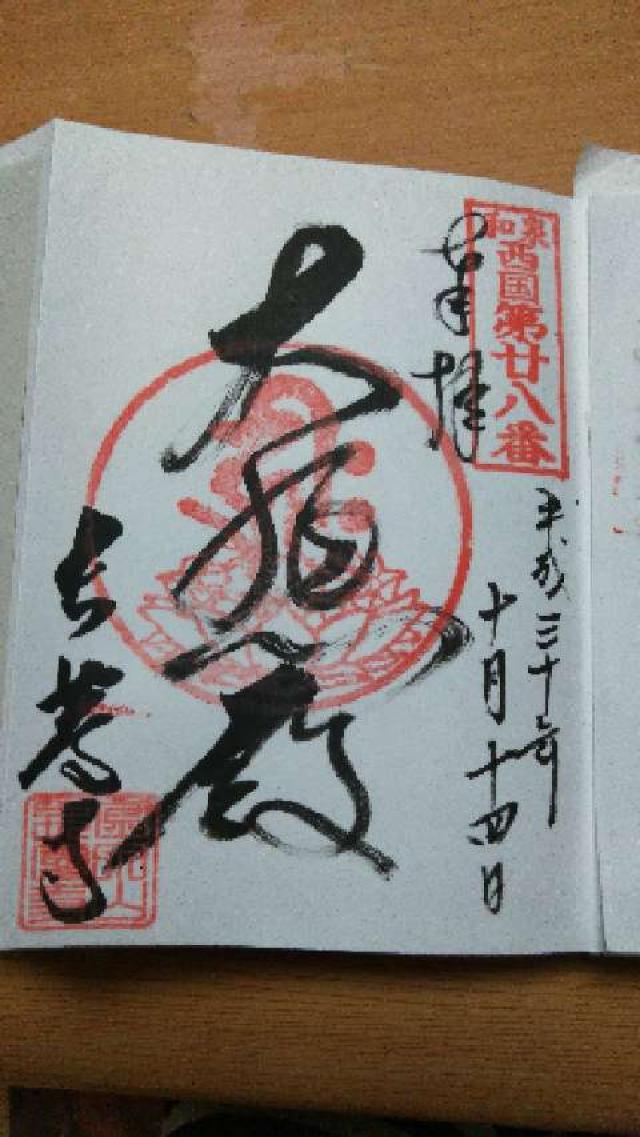 和泉西国第廿八番
奉拝
平成三十年
十月十四日
大悲殿
長慶寺